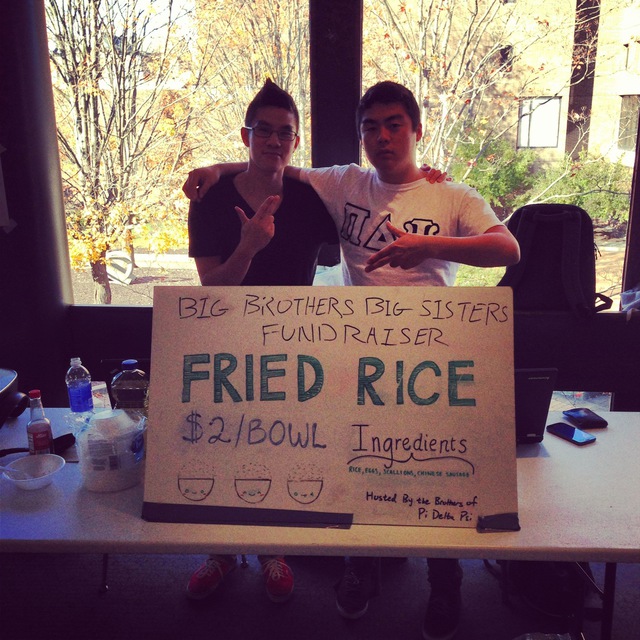 ΠΔΨ
BIG BROTHERS BIG SISTERS
FUNDRAISER
FRIED RICE
$2/BOWL
Ingredients
RICE, EGGS, SCALLIONS, CHINESE SAUSAGE
Hosted By the Brothers of
Pi Delta Psi